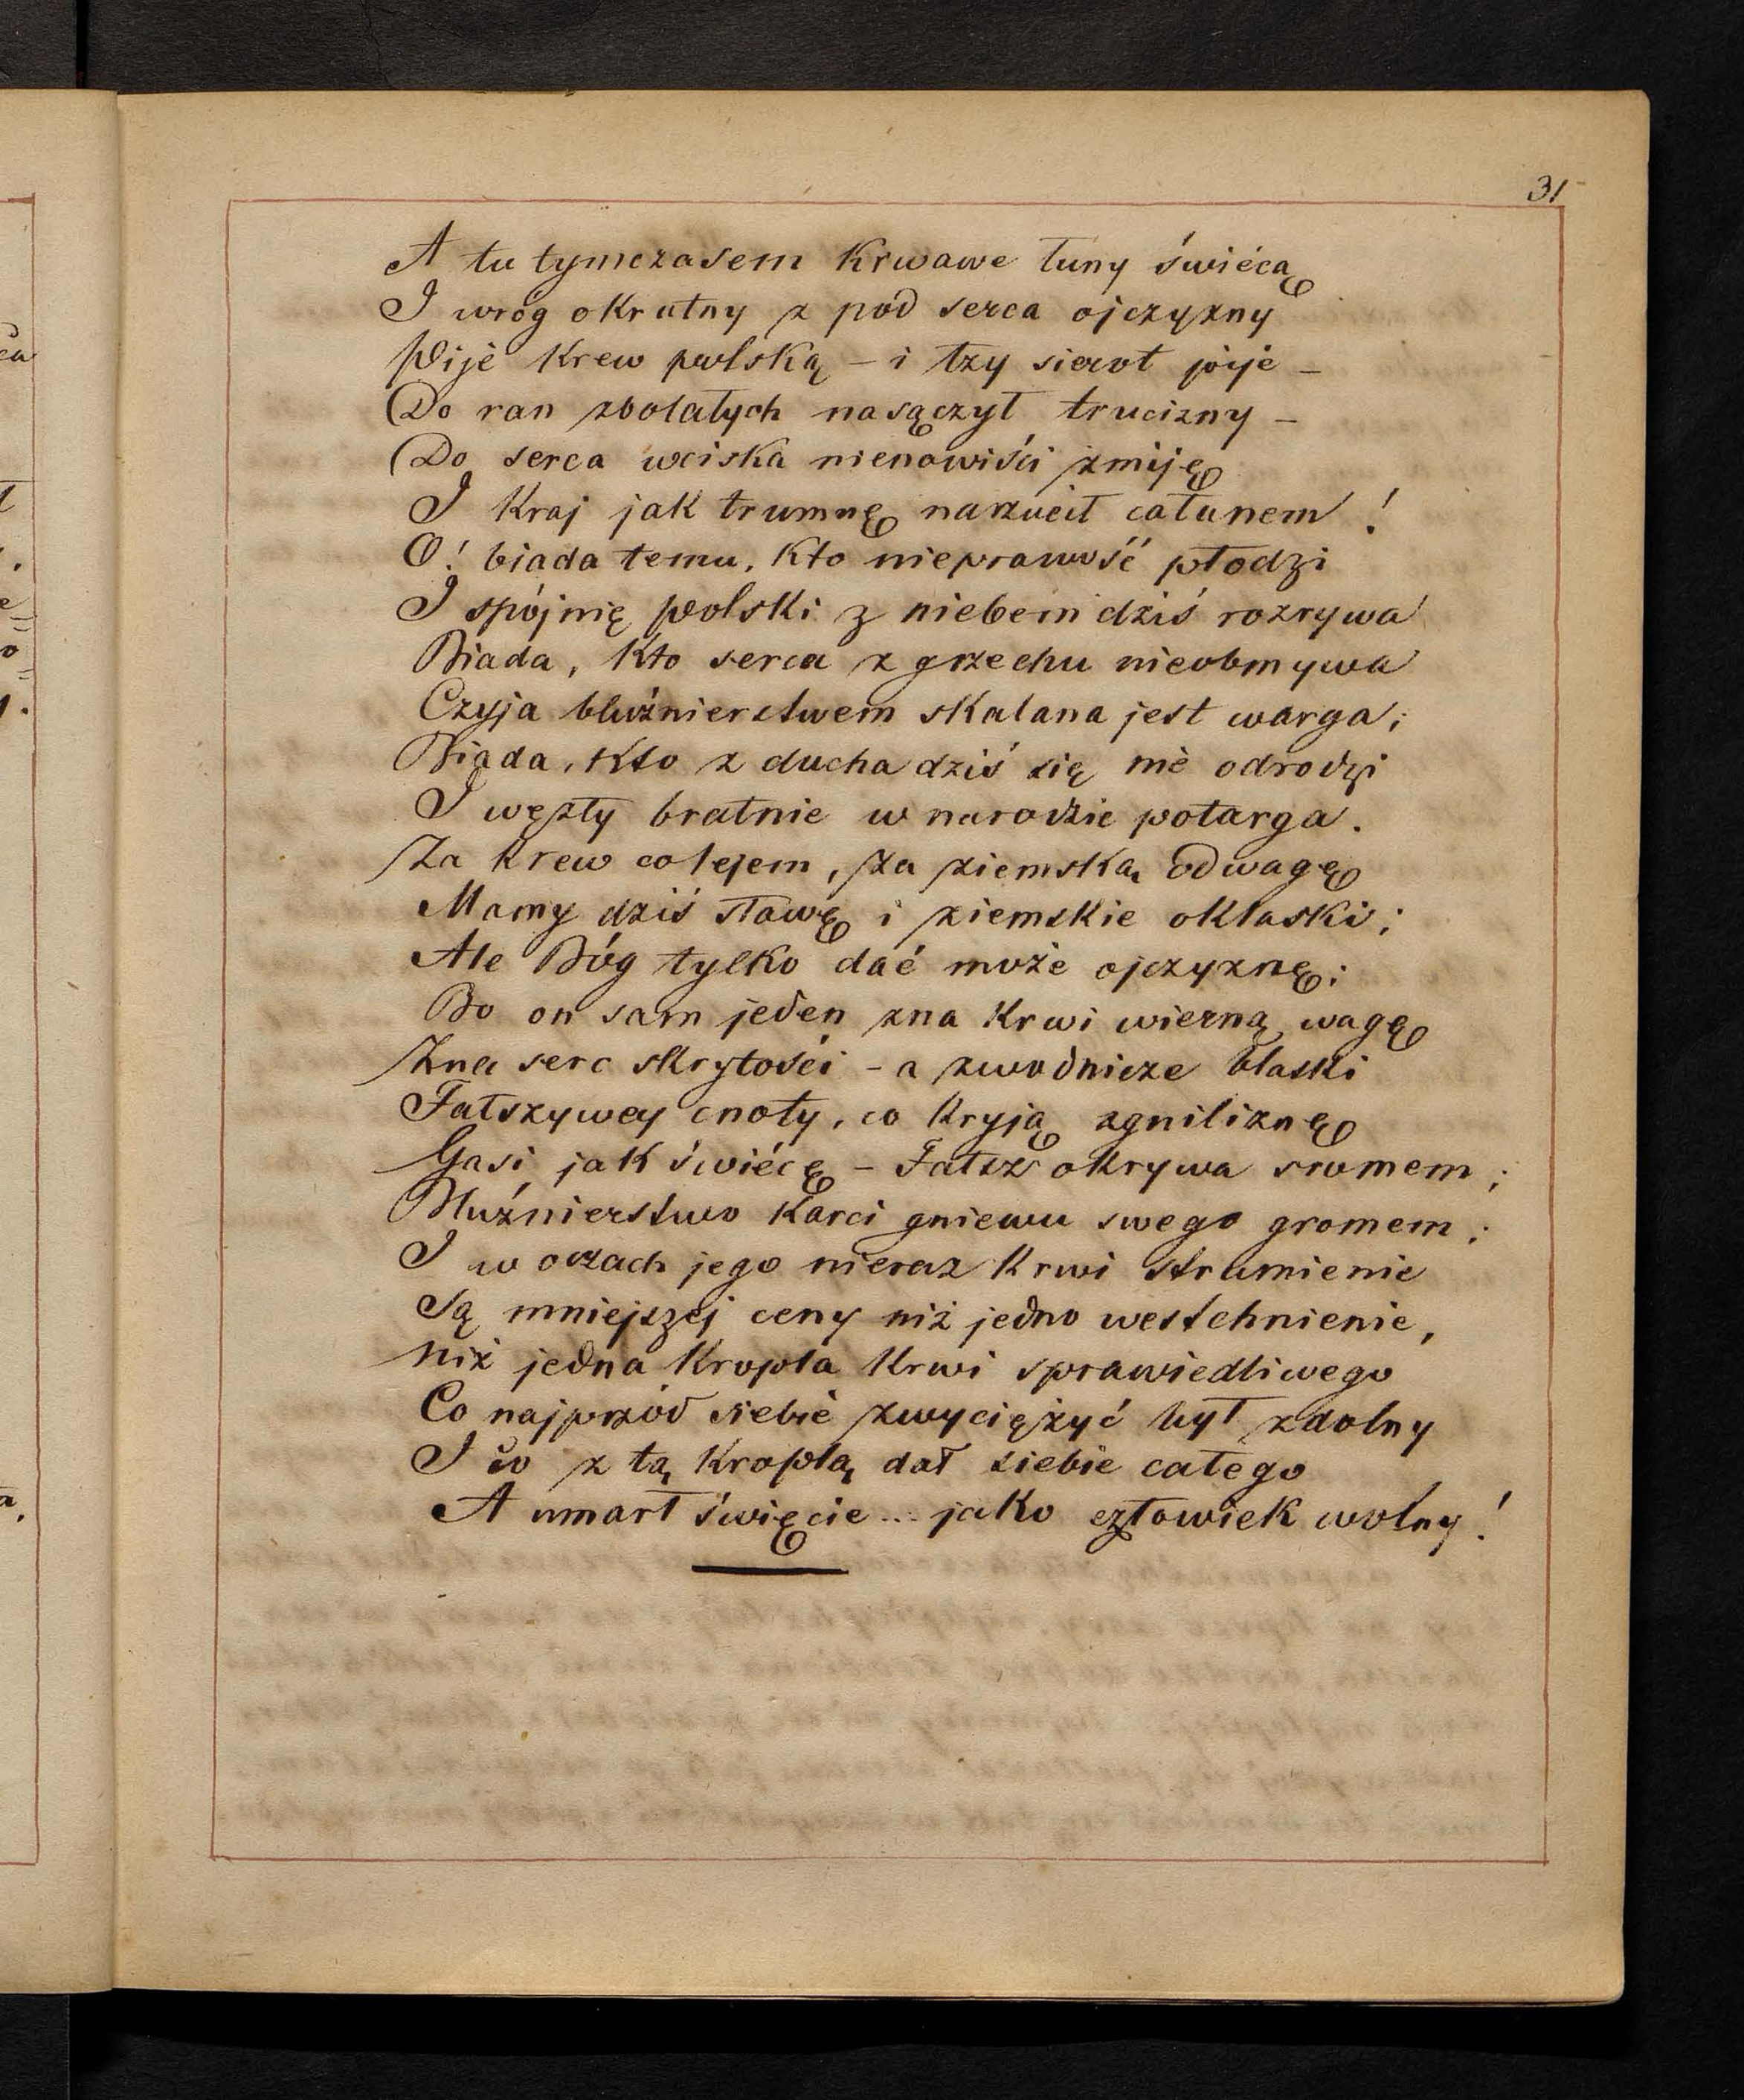 31
A tu tymczasem krwawe łuny świécą
I wróg okrutny z pod serca ojczyzny
Pije krew polską – i łzy sierot pije –
Do ran zbolałych nasączył trucizny –
Do serca wciska nienawiści zmiję
I kraj jak trumnę narzucił całunem!
O! biada temu, kto nieprawość płodzi
I spójnię polski z niebem dziś rozrywa
Biada, kto serca z grzechu nieobmywa
Czyja bluźnierstwem skalana jest warga;
Biada, kto z ducha dziś się nie odrodzi
I węzły bratnie w narodzie potarga.
Za krew co lejem, za ziemską odwagę
Mamy dziś sławę i ziemskie oklaski;
Ale Bóg tylko dać może ojczyznę;
Bo on sam jeden zna krwi wierną wagę
Zna serc skrytości – a zwodnicze blaski
Fałszywej cnoty, co kryją zgniliznę
Gasi jak świécę – Fałsz okrywa sromem;
Bluźnierstwo karci gniewu swego gromem;
I w oczach jego nieraz krwi strumienie
Są mniejszej ceny niż jedno westchnienie,
Niż jedna kropla krwi sprawiedliwego
Co najprzód siebie zwyciężyć był zdolny
I co z tą kroplą dał siebie całego
A umarł święcie... jako człowiek wolny!